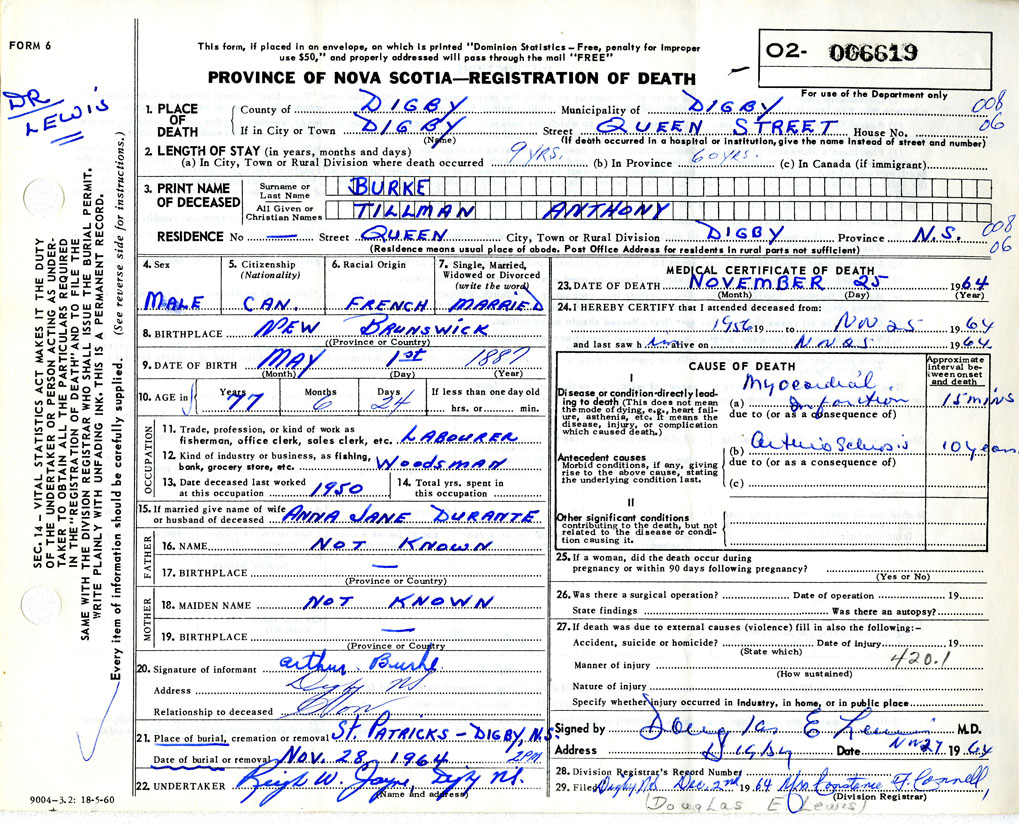 FORM 6
DR LEWIS
This form, if placed in an envelope, on which is printed "Dominion Statistics—Free, penalty for improper
use $50," and properly addressed will pass through the mail "FREE"
PROVINCE OF NOVA SCOTIA—REGISTRATION OF DEATH
02- 006619
For use of the Department only
008
06
1. PLACE OF DEATH
County of DIGBY Municipality of DIGBY
If in City or Town DIGBY Street QUEEN STREET House No.
(Name) (If death occurred in a hospital or institution, give the name instead of street and number)
2. LENGTH OF STAY (in years, months and days)
(a) In City, Town or Rural Division where death occurred 9 YRS. (b) In Province 60 YRS. (c) In Canada (if immigrant)
3. PRINT NAME OF DECEASED
Surname or Last Name BURKE
All Given or Christian Names TILLMAN ANTHONY
RESIDENCE No — Street QUEEN City, Town or Rural Division DIGBY Province N.S.
008
06
(Residence means usual place of abode. Post Office Address for residents in rural parts not sufficient)
4. Sex MALE
5. Citizenship (Nationality) CAN.
6. Racial Origin FRENCH
7. Single, Married, Widowed or Divorced (write the word) MARRIED
8. BIRTHPLACE NEW BRUNSWICK
(Province or Country)
9. DATE OF BIRTH MAY 1st 1887
(Month) (Day) (Year)
10. AGE in Years 77 Months 6 Days 24 If less than one day old hrs. or min.
OCCUPATION
11. Trade, profession, or kind of work as fisherman, office clerk, sales clerk, etc. LABOURER
12. Kind of industry or business, as fishing, bank, grocery store, etc. WOODSMAN
13. Date deceased last worked at this occupation 1950
14. Total yrs. spent in this occupation
15. If married give name of wife or husband of deceased ANNA JANE DURANTE
FATHER
16. NAME NOT KNOWN
17. BIRTHPLACE —
(Province or Country)
MOTHER
18. MAIDEN NAME NOT KNOWN
19. BIRTHPLACE —
(Province or Country)
20. Signature of informant Arthur Burke
Address Digby NS.
Relationship to deceased Son
21. Place of burial, cremation or removal ST. PATRICKS — DIGBY, N.S.
Date of burial or removal NOV. 28, 1964 2PM
22. UNDERTAKER W. Jayne, Digby NS.
(Name and address)
9004-3.2: 18-5-60
MEDICAL CERTIFICATE OF DEATH
23. DATE OF DEATH NOVEMBER 25 1964
(Month) (Day) (Year)
24. I HEREBY CERTIFY that I attended deceased from:
1956 19 to Nov 25 1964
and last saw him alive on Nov 25 1964
CAUSE OF DEATH
Approximate interval between onset and death
I
Disease or condition directly leading to death (This does not mean the mode of dying, e.g., heart failure, asthenia, etc. It means the disease, injury, or complication which caused death.)
(a) Myocardial Infarction 15 mins
due to (or as a consequence of)
Antecedent causes
Morbid conditions, if any, giving rise to the above cause, stating the underlying condition last.
(b) Arteriosclerosis 10 years
due to (or as a consequence of)
(c)
II
Other significant conditions
contributing to the death, but not related to the disease or condition causing it.
25. If a woman, did the death occur during
pregnancy or within 90 days following pregnancy?
(Yes or No)
26. Was there a surgical operation? Date of operation 19
State findings Was there an autopsy?
27. If death was due to external causes (violence) fill in also the following:-
Accident, suicide or homicide? Date of injury 19
(State which)
420.1
Manner of injury
(How sustained)
Nature of injury
Specify whether injury occurred in Industry, in home, or in public place
Signed by Douglas E Lewis M.D.
Address Digby Date Nov 27 1964
28. Division Registrar's Record Number
29. Filed Digby NS Dec. 2nd 1964 Mrs Constance F. Connell,
(Division Registrar)
(Douglas E Lewis)
SEC. 14 – VITAL STATISTICS ACT MAKES IT THE DUTY
OF THE UNDERTAKER OR PERSON ACTING AS UNDER-
TAKER TO OBTAIN ALL THE PARTICULARS REQUIRED
IN THE "REGISTRATION OF DEATH" AND TO FILE THE
SAME WITH THE DIVISION REGISTRAR WHO SHALL ISSUE THE BURIAL PERMIT.
WRITE PLAINLY WITH UNFADING INK. THIS IS A PERMANENT RECORD.
Every item of information should be carefully supplied. (See reverse side for instructions.)